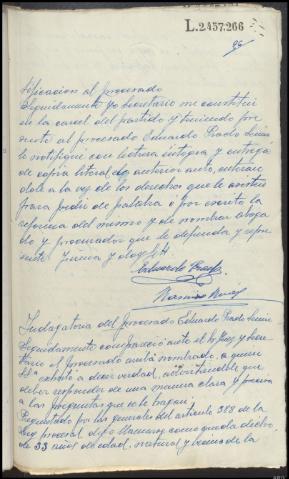 L.2457.266
tificacion al procesado
Seguidamente yo Secretario me constitui
en la carcel del partido y teniendo pre
sente al procesado Eduardo Prado
le notifiqué con lectura íntegra y entrega
de copia literal del anterior auto, enteran
dole a la vez de los derechos que le asisten
para pedir de palabra ó por escrito la
reforma del mismo y de nombrar aboga
do y procurador que le defienda y repre
sente firma y doy fé
Eduardo Prado
Indagatoria del procesado Eduardo Prado
Seguidamente compareció ante el Sr Juez y
el procesado arriba nombrado, a quien
exhortó a decir verdad, advirtiendole que
deber responder de una manera clara y precisa
a las preguntas que se le hagan
Preguntado por las generales del articulo 388 de la
Ley procesal dijo llamarse como queda dicho,
de 33 años de edad, natural y vecino de la